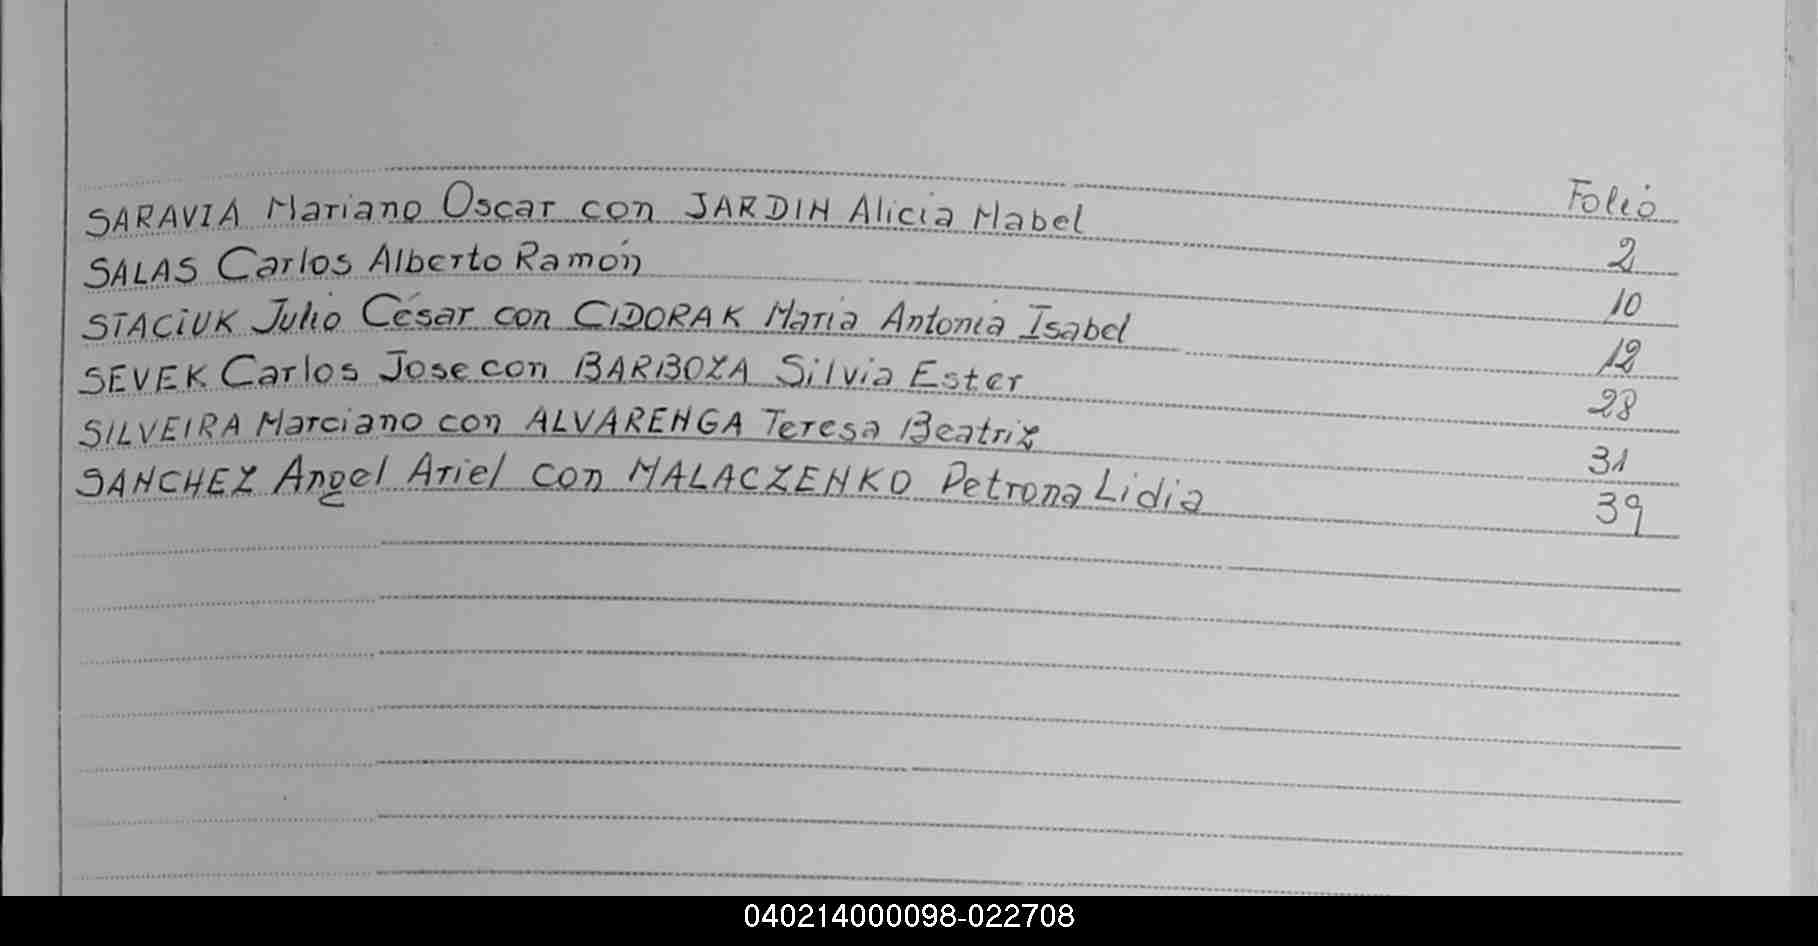 Folio
SARAVIA Mariano Oscar con JARDIN Alicia Mabel 2
SALAS Carlos Alberto Ramón 10
STACIUK Julio César con CIDORAK Maria Antonia Isabel 12
SEVEK Carlos Jose con BARBOZA Silvia Ester 28
SILVEIRA Marciano con ALVARENGA Teresa Beatriz 31
SANCHEZ Angel Ariel con MALACZENKO Petrona Lidia 39
040214000098-022708